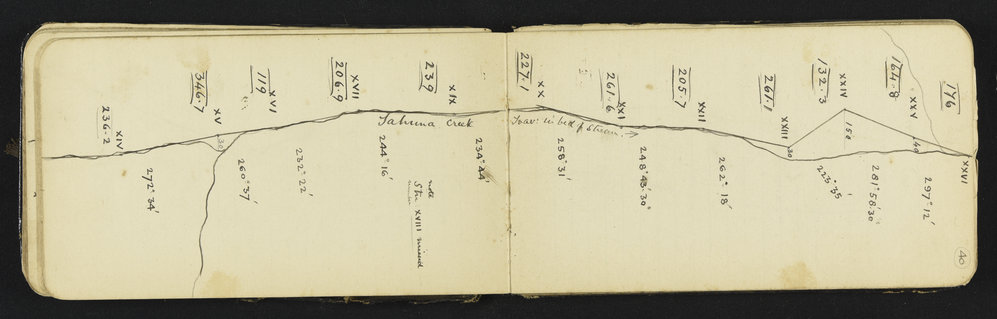 236.2
XIV
272° 34'
346.7
XV
30
260° 37'
119
XVI
232° 22'
206.9
XVII
244° 16'
Tahuna Creek
note
Stn XVIII missed
239
XIX
234° 44'
227.1
XX
258° 31'
Trav: in bed of Stream
261.6
XXI
248° 43' 30"
205.7
XXII
262° 18'
261.1
XXIII
30
223° 35'
132.3
XXIV
150
281° 58' 30"
164.8
XXV
49
297° 12'
176
XXVI
40